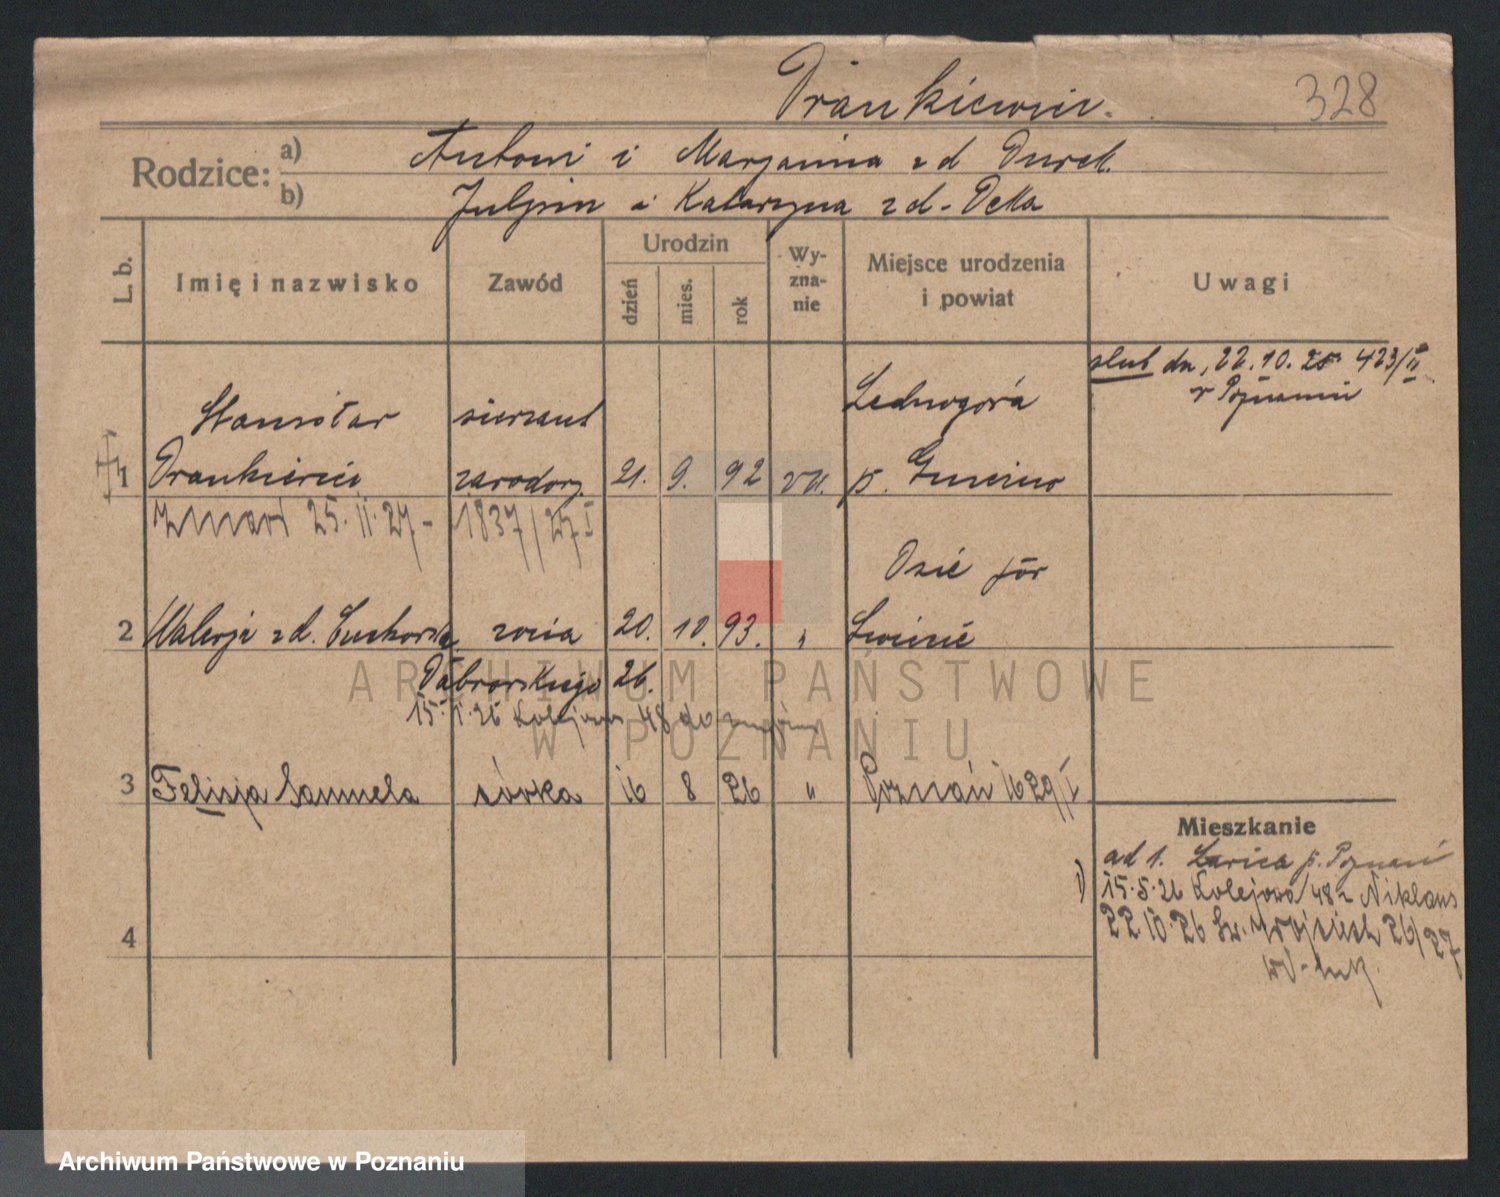 328
Rodzice: a) Antoni i Marjanna z d
b) Juljan i Katarzyna z d.
L. b.
Imię i nazwisko
Zawód
Urodzin
dzień
mies.
rok
Wy-
zna-
nie
Miejsce urodzenia
i powiat
Uwagi
ślub dn, 22.10. 423/II
w Poznaniu
Stanisław sierżant Lednogóra
1 zawodow. 21. 9. 92 p. Gniezno
Zmarł 25.II.27- 1837/27 I
2 Walerja z d. żona 20. 10. 93. "
Dąbrowskiego 26.
15. 26 Kolejowa 48
3 Felicja Samuela córka 16 8 26 " Poznań 1629/I
Mieszkanie
ad 1. Ławica p. Poznań
1) 15.5.26 Kolejowa 48 Niklaus
22.10.26 Św. Wojciech 26/27
4
ARCHIWUM PAŃSTWOWE
W POZNANIU
Archiwum Państwowe w Poznaniu